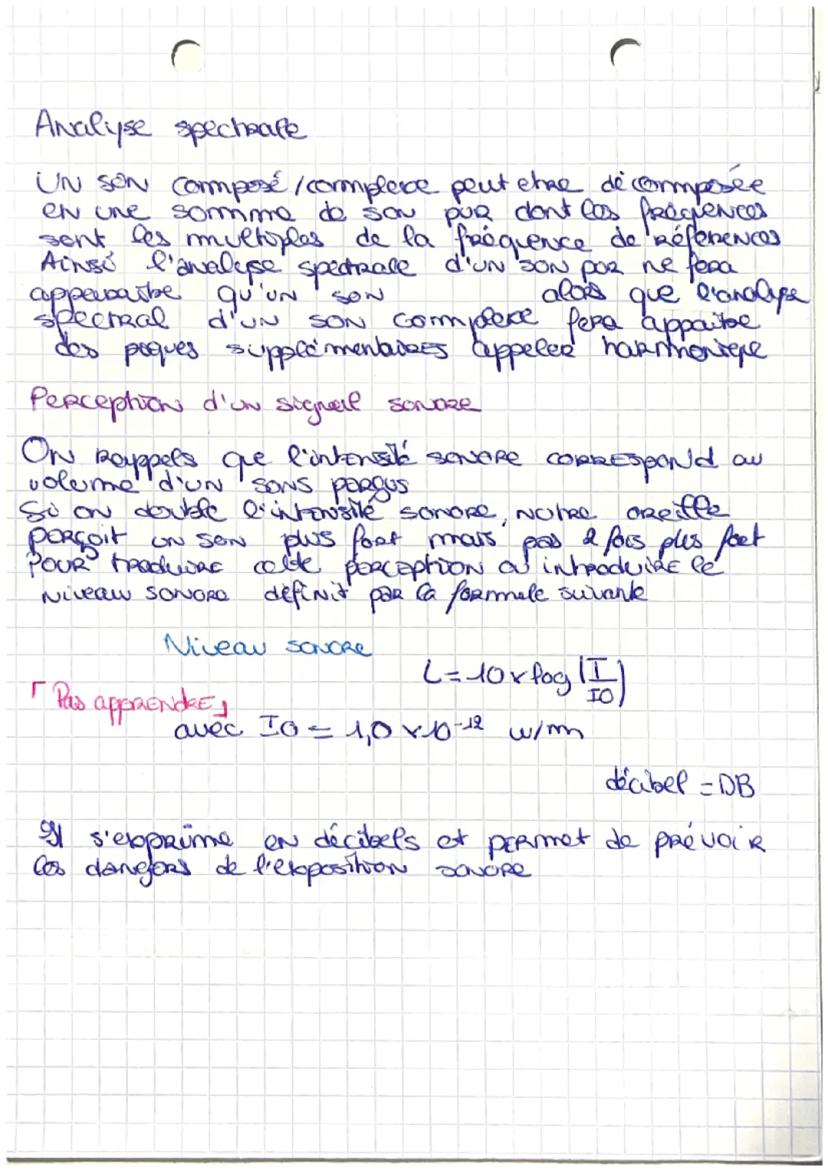 Analyse spectrale
Un son composé / complexe peut etre décomposée
en une somme de son pur dont les fréquences
sont les multiples de la fréquence de références
Ainsi l'analyse spectrale d'un son pur ne fera
apparaitre qu'un son alors que l'analyse
spectral d'un son complexe fera appaitre
des piques supplémentaires appeler harmonique
Perception d'un signal sonore
On rappels que l'intensité sonore correspond au
volume d'un sons perçus
Si on double l'intensité sonore, notre oreille
perçoit un son plus fort mais pas 2 fois plus fort
Pour traduire cette perception on introduire le
niveau sonore définit par la formule suivante
Niveau sonore
L = 10 x log (I/I0)
「Pas apprendre」
avec I0 = 1,0 x 10-12 w/m
décibel = DB
Il s'exprime en décibels et permet de prévoir
les dangers de l'exposition sonore